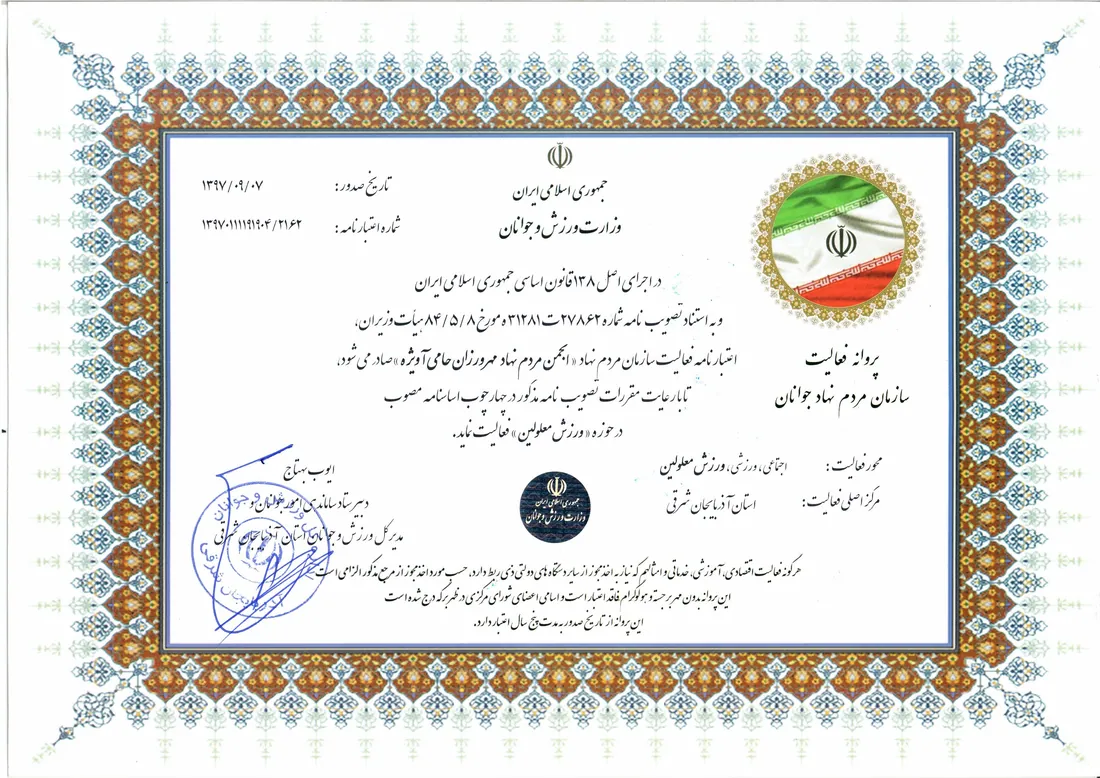 جمهوری اسلامی ایران
وزارت ورزش و جوانان
تاریخ صدور : ۱۳۹۷/۰۹/۰۷
شماره اعتبارنامه : ۱۳۹۷۰۱۱۱۱۹۱۹۰۴/۲۱۶۲
در اجرای اصل ۱۳۸ قانون اساسی جمهوری اسلامی ایران
و به استناد تصویب نامه شماره ۲۷۸۶۲ت۳۱۲۸۱ه مورخ ۸۴/۵/۸ هیأت وزیران،
اعتبارنامه فعالیت سازمان مردم نهاد « انجمن مردم نهاد مهرورزان حامی آویژه » صادر می شود،
تا با رعایت مقررات تصویب نامه مذکور در چهارچوب اساسنامه مصوب
در حوزه « ورزش معلولین » فعالیت نماید.
پروانه فعالیت
سازمان مردم نهاد جوانان
محور فعالیت : اجتماعی، ورزشی، ورزش معلولین
مرکز اصلی فعالیت : استان آذربایجان شرقی
ایوب بهتاج
دبیر ستاد ساماندهی امور جوانان و
مدیرکل ورزش و جوانان استان آذربایجان شرقی
جمهوری اسلامی ایران
وزارت ورزش و جوانان
هرگونه فعالیت اقتصادی، آموزشی، خدماتی و امثالهم که نیاز به اخذ مجوز از سایر دستگاه های دولتی ذی ربط دارد، حسب مورد اخذ مجوز از مرجع مذکور الزامی است
این پروانه بدون مهر برجسته و هولوگرام فاقد اعتبار است و اسامی اعضای شورای مرکزی در ظهر برگه درج شده است
این پروانه از تاریخ صدور به مدت پنج سال اعتبار دارد.